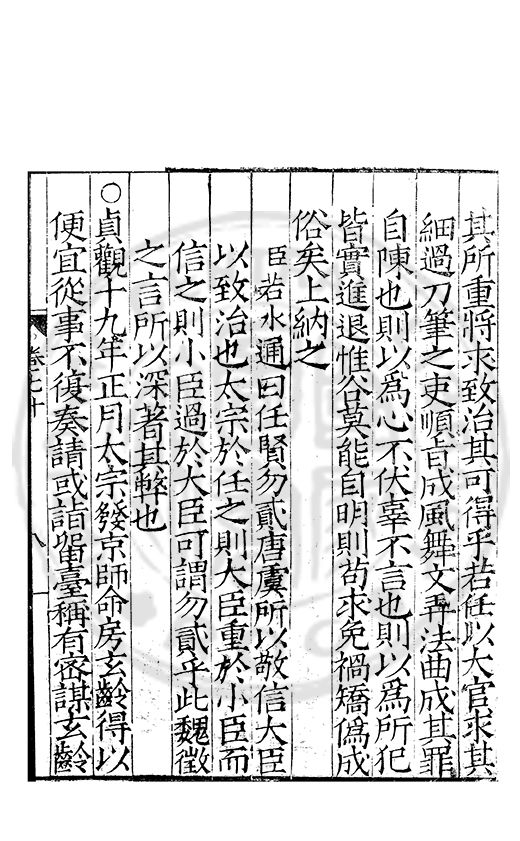 其所重將求致治其可得乎若任以大官求其
細過刀筆之吏順旨成風舞文弄法曲成其罪
自陳也則以爲心不伏辜不言也則以爲所犯
皆實進退惟谷莫能自明則苟求免禍矯僞成
俗矣上納之
臣若水通曰任賢勿貳唐虞所以敬信大臣
以致治也太宗於任之則大臣重於小臣而
信之則小臣過於大臣可謂勿貳乎此魏徵
之言所以深著其弊也
○貞觀十九年正月太宗發京師命房玄齡得以
便宜從事不復奏請或詣留臺稱有密謀玄齡
卷七十
八